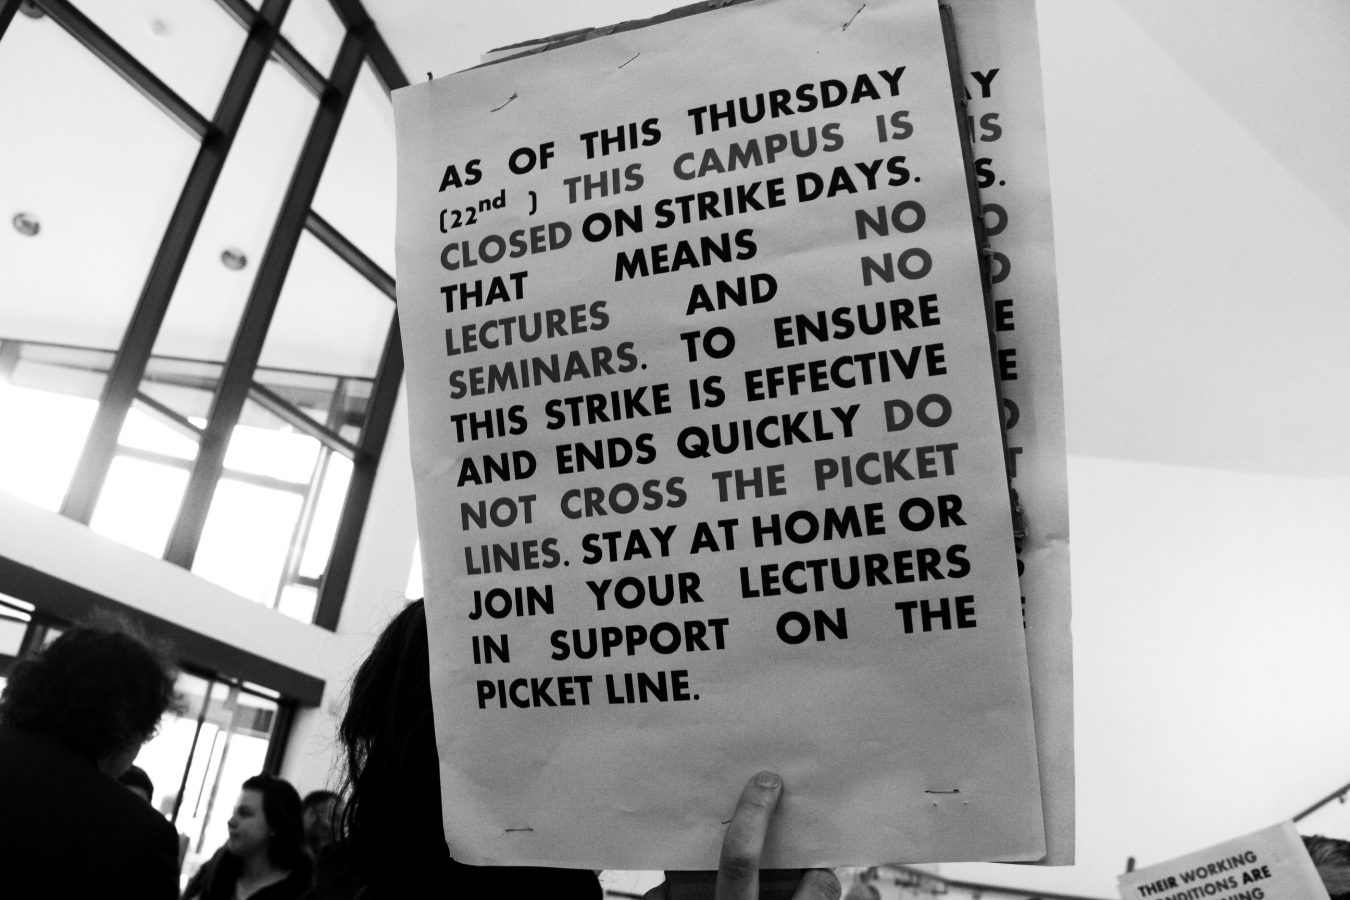 AS OF THIS THURSDAY
(22nd ) THIS CAMPUS IS
CLOSED ON STRIKE DAYS.
THAT MEANS NO
LECTURES AND NO
SEMINARS. TO ENSURE
THIS STRIKE IS EFFECTIVE
AND ENDS QUICKLY DO
NOT CROSS THE PICKET
LINES. STAY AT HOME OR
JOIN YOUR LECTURERS
IN SUPPORT ON THE
PICKET LINE.
THEIR WORKING
CONDITIONS ARE